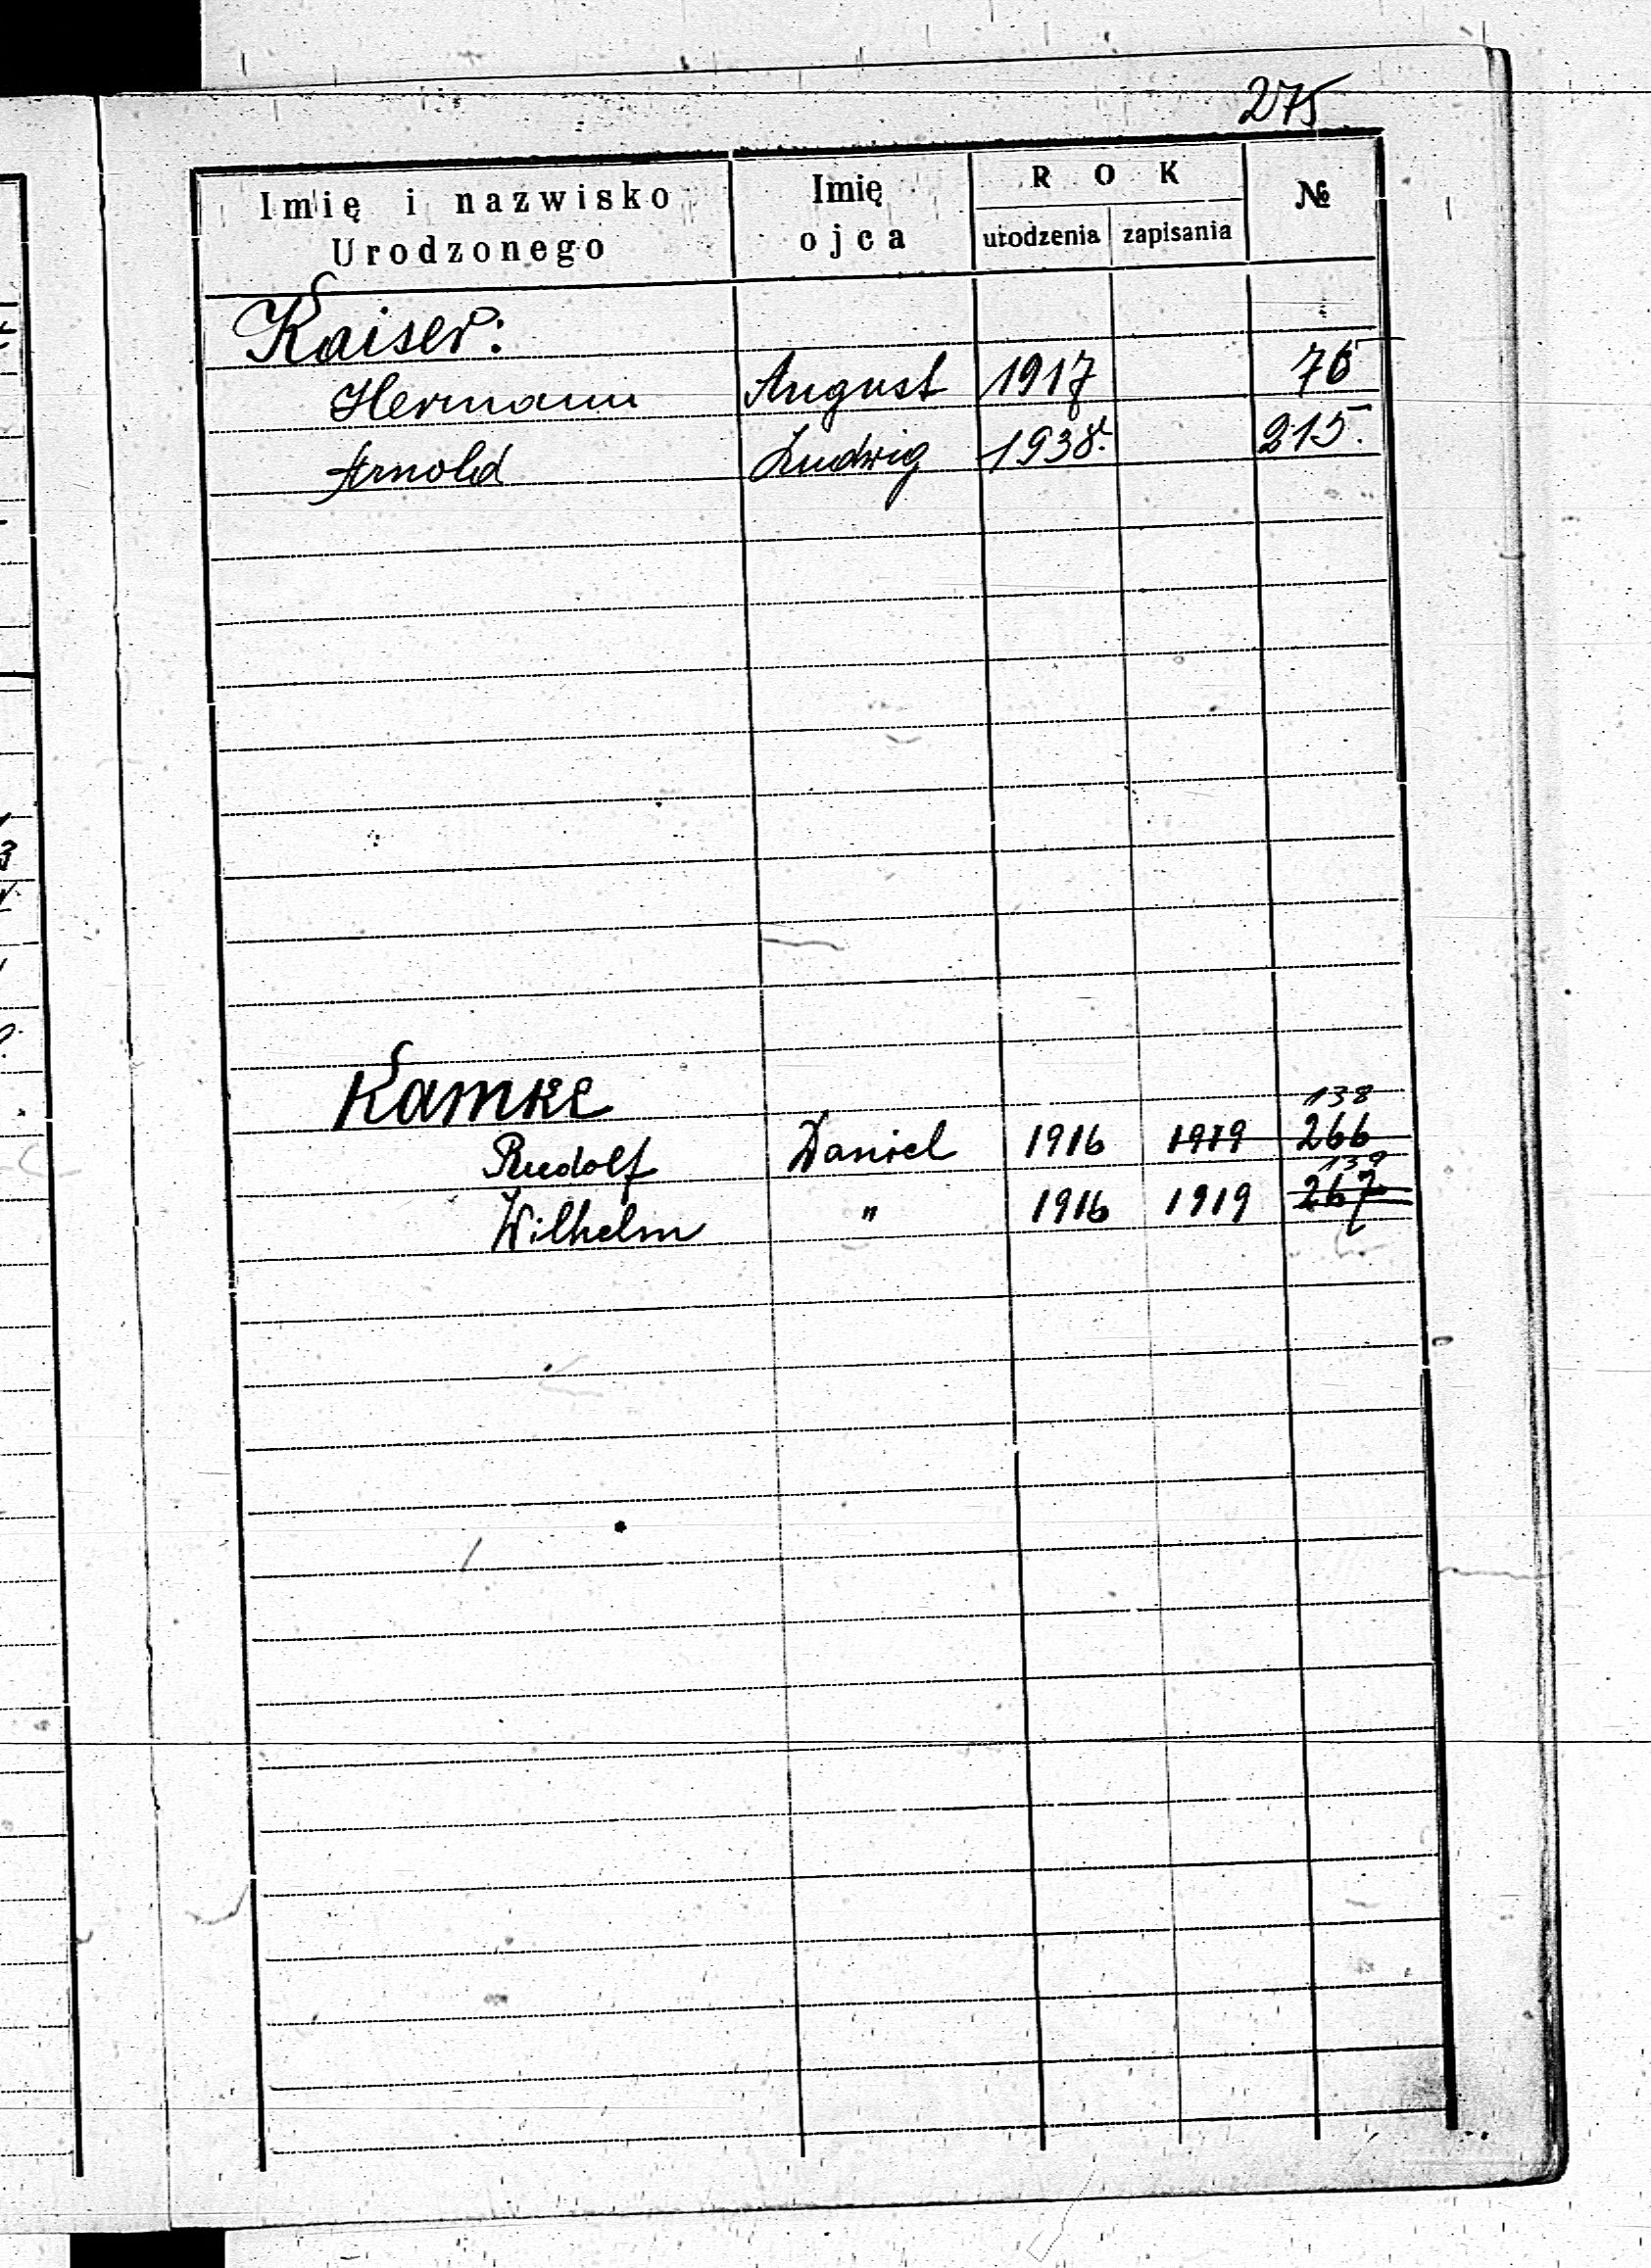 275
Imię i nazwisko Urodzonego
Imię ojca
ROK
urodzenia zapisania
№
Kaiser:
Hermann August 1917 76
Arnold Ludwig 1938. 215.
Kamke
138
Rudolf Daniel 1916 1919 266
139
Wilhelm " 1916 1919 267